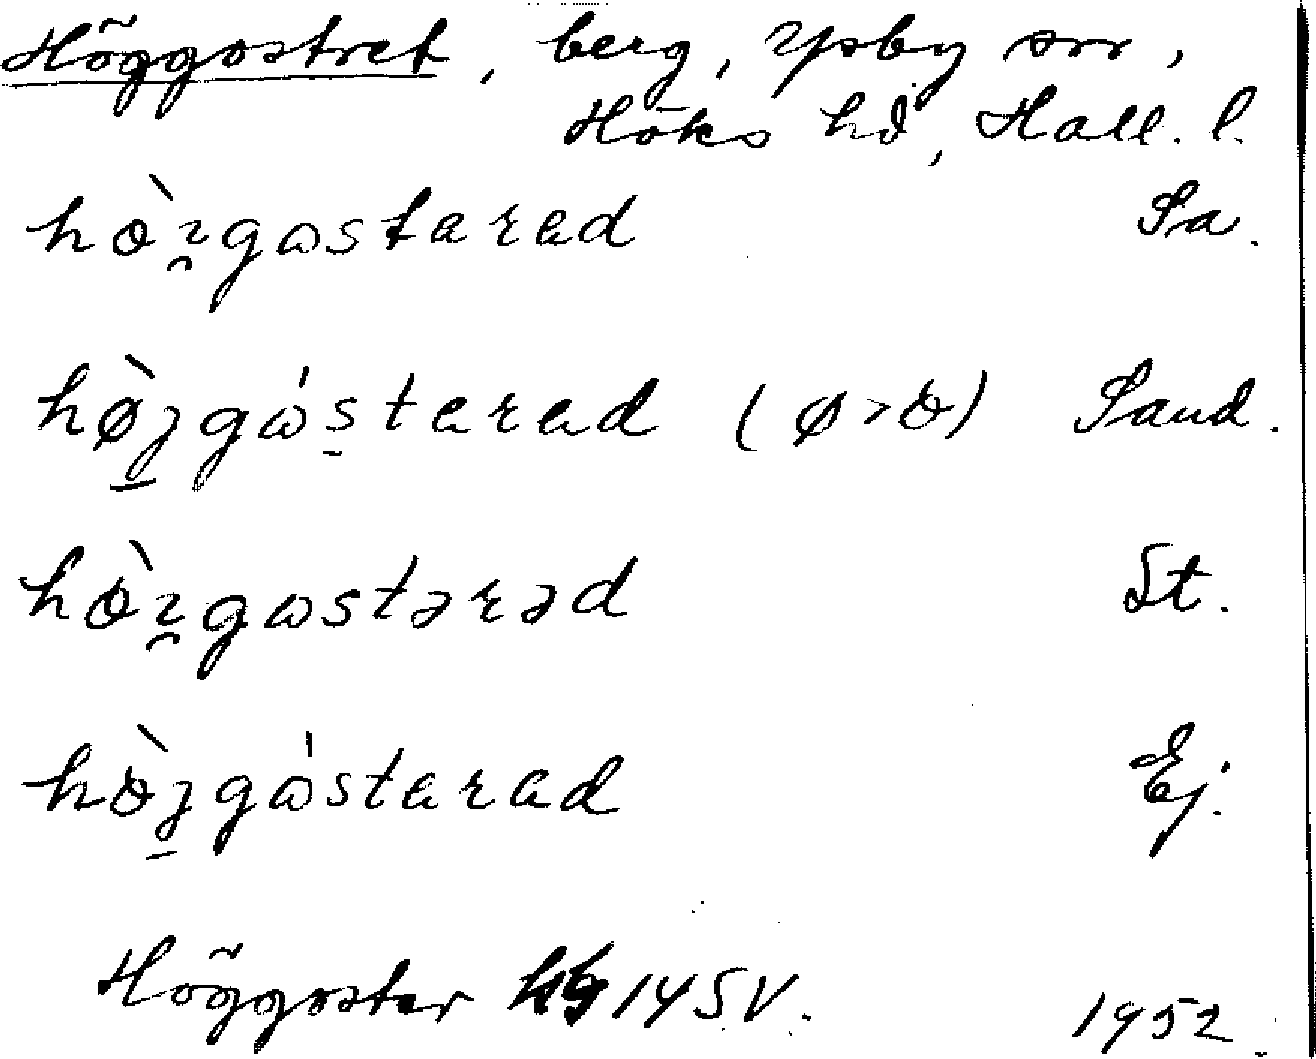 Höggostret, berg, Ysby sn,
Höks hd, Hall. l.
hò̱ɪgɷstarad Sa.
hø̀ʒgɷ́starad (ø>ò) Sand.
hòɪ̯gɷstərəd St.
hòʒgɷ́starad Ej.
Höggoster 14SV. 1952